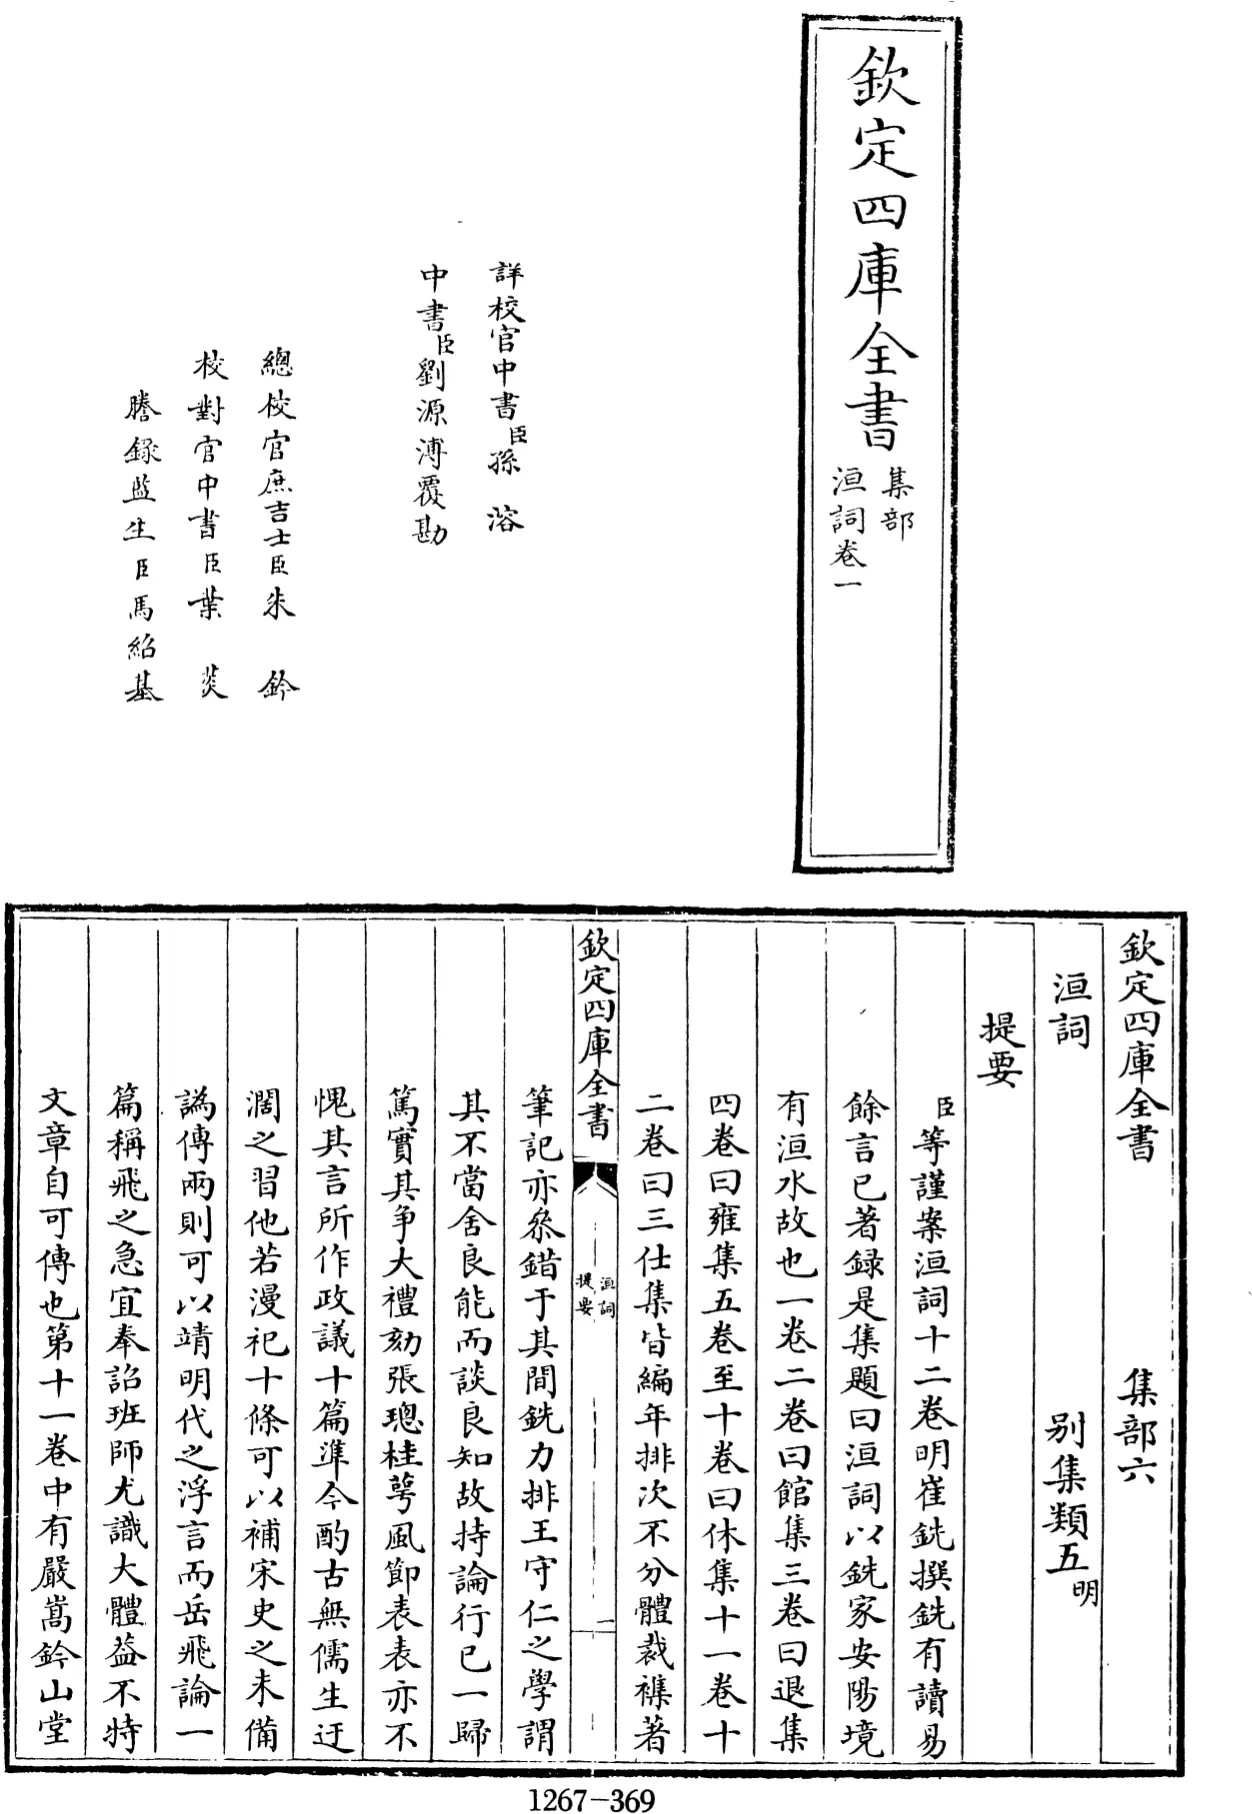 欽定四庫全書
集部
洹詞卷一
詳校官中書臣孫溶
中書臣劉源溥覆勘
總校官庶吉士臣朱鈐
校對官中書臣葉菼
謄錄監生臣馬紹基
欽定四庫全書 集部六
洹詞 别集類五明
提要
臣等謹案洹詞十二卷明崔銑撰銑有讀易
餘言已著録是集題曰洹詞以銑家安陽境
有洹水故也一卷二卷曰館集三卷曰退集
四卷曰雍集五卷至十卷曰休集十一卷十
二卷曰三仕集皆編年排次不分體裁襍著
欽定四庫全書
洹詞
提要
一
筆記亦叅錯于其間銑力排王守仁之學謂
其不當舍良能而談良知故持論行已一歸
篤實其争大禮劾張璁桂萼風節表表亦不
愧其言所作政議十篇準今酌古無儒生迂
濶之習他若漫祀十條可以補宋史之未備
譌傳兩則可以靖明代之浮言而岳飛論一
篇稱飛之急宜奉詔班師尤識大體益不特
文章自可傳也第十一卷中有嚴嵩鈐山堂
1267-369